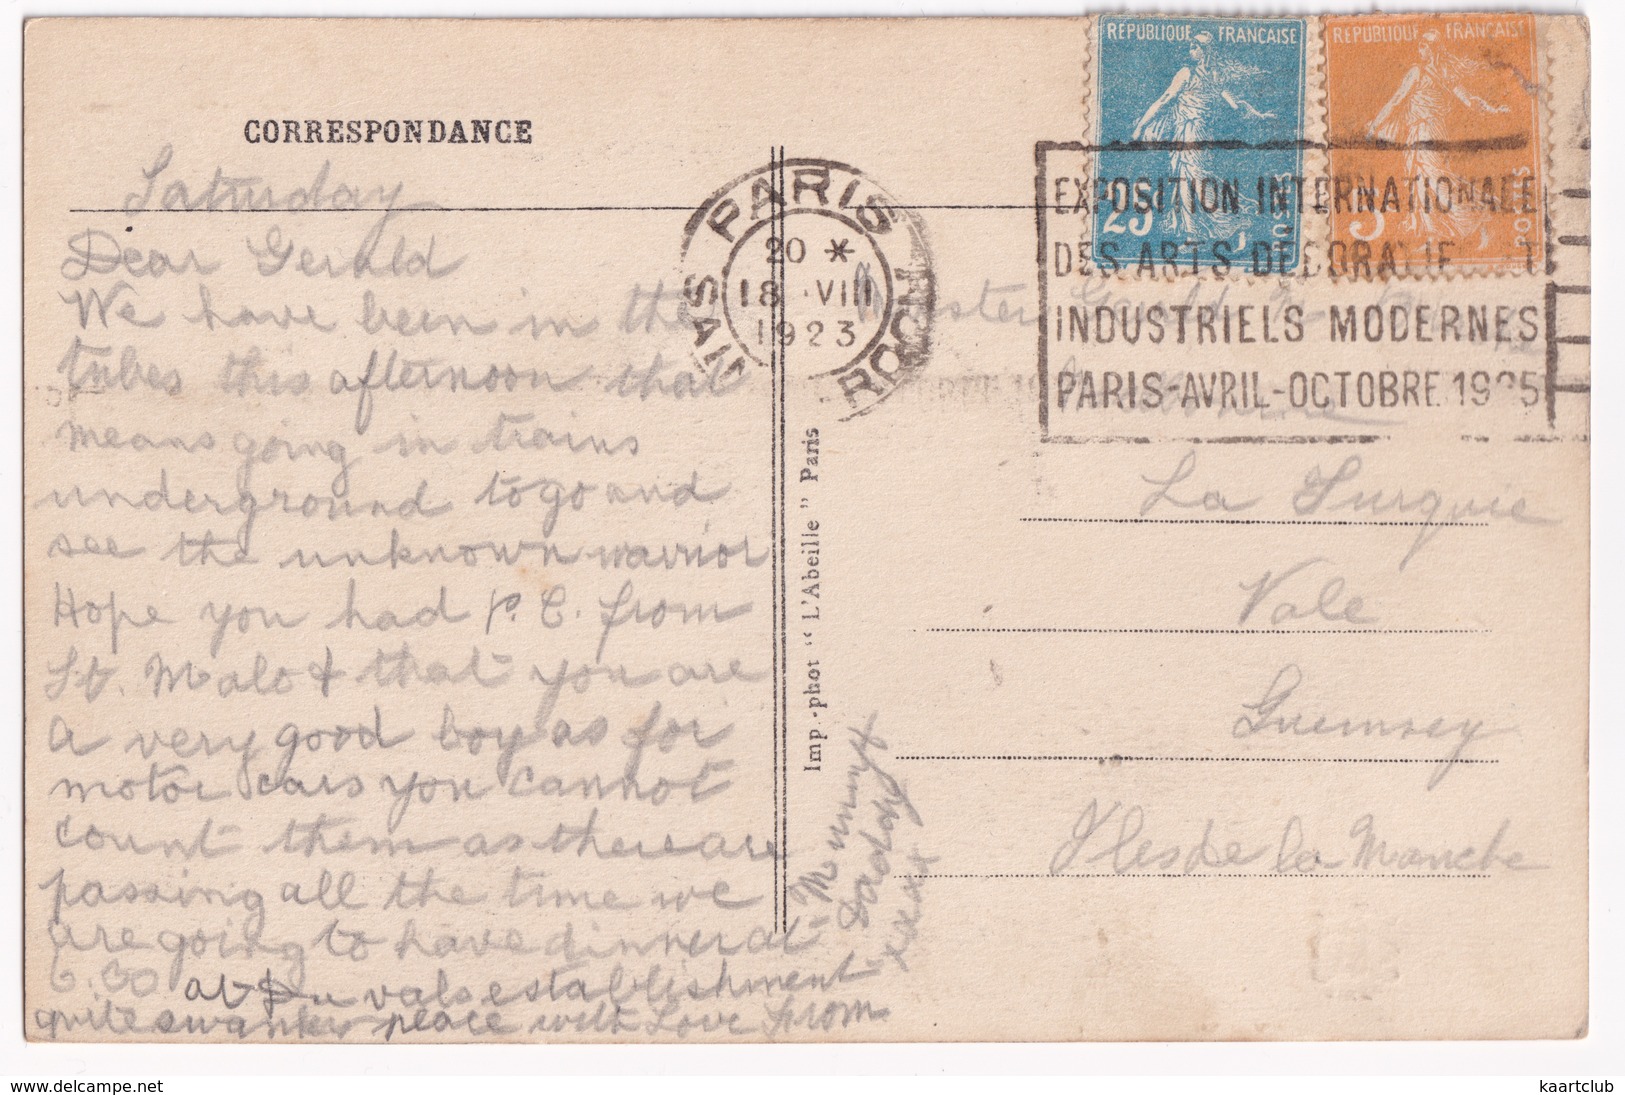 CORRESPONDANCE
Saturday
Dear Gerald
We have been in the
tubes this afternoon that
means going in trains
underground to go and
see the unknown warrior
Hope you had p. C. from
St. Malo & that you are
a very good boy as for
motor cars you cannot
count them as there are
passing all the time we
are going to have dinner at
6.30 at Duvals establishment
quite swanky place with Love from
Mummy &
Daddy
xxxxx
Imp.-phot "L'Abeille" Paris
PARIS
20 *
18 VIII
1923
RÉPUBLIQUE FRANÇAISE
25
POSTES
RÉPUBLIQUE FRANÇAISE
5
POSTES
EXPOSITION INTERNATIONALE
DES ARTS DÉCORATIFS ET
INDUSTRIELS MODERNES
PARIS-AVRIL-OCTOBRE 1925
Master Gerald
La Turquie
Vale
Guernsey
Iles de la Manche
kaartclub